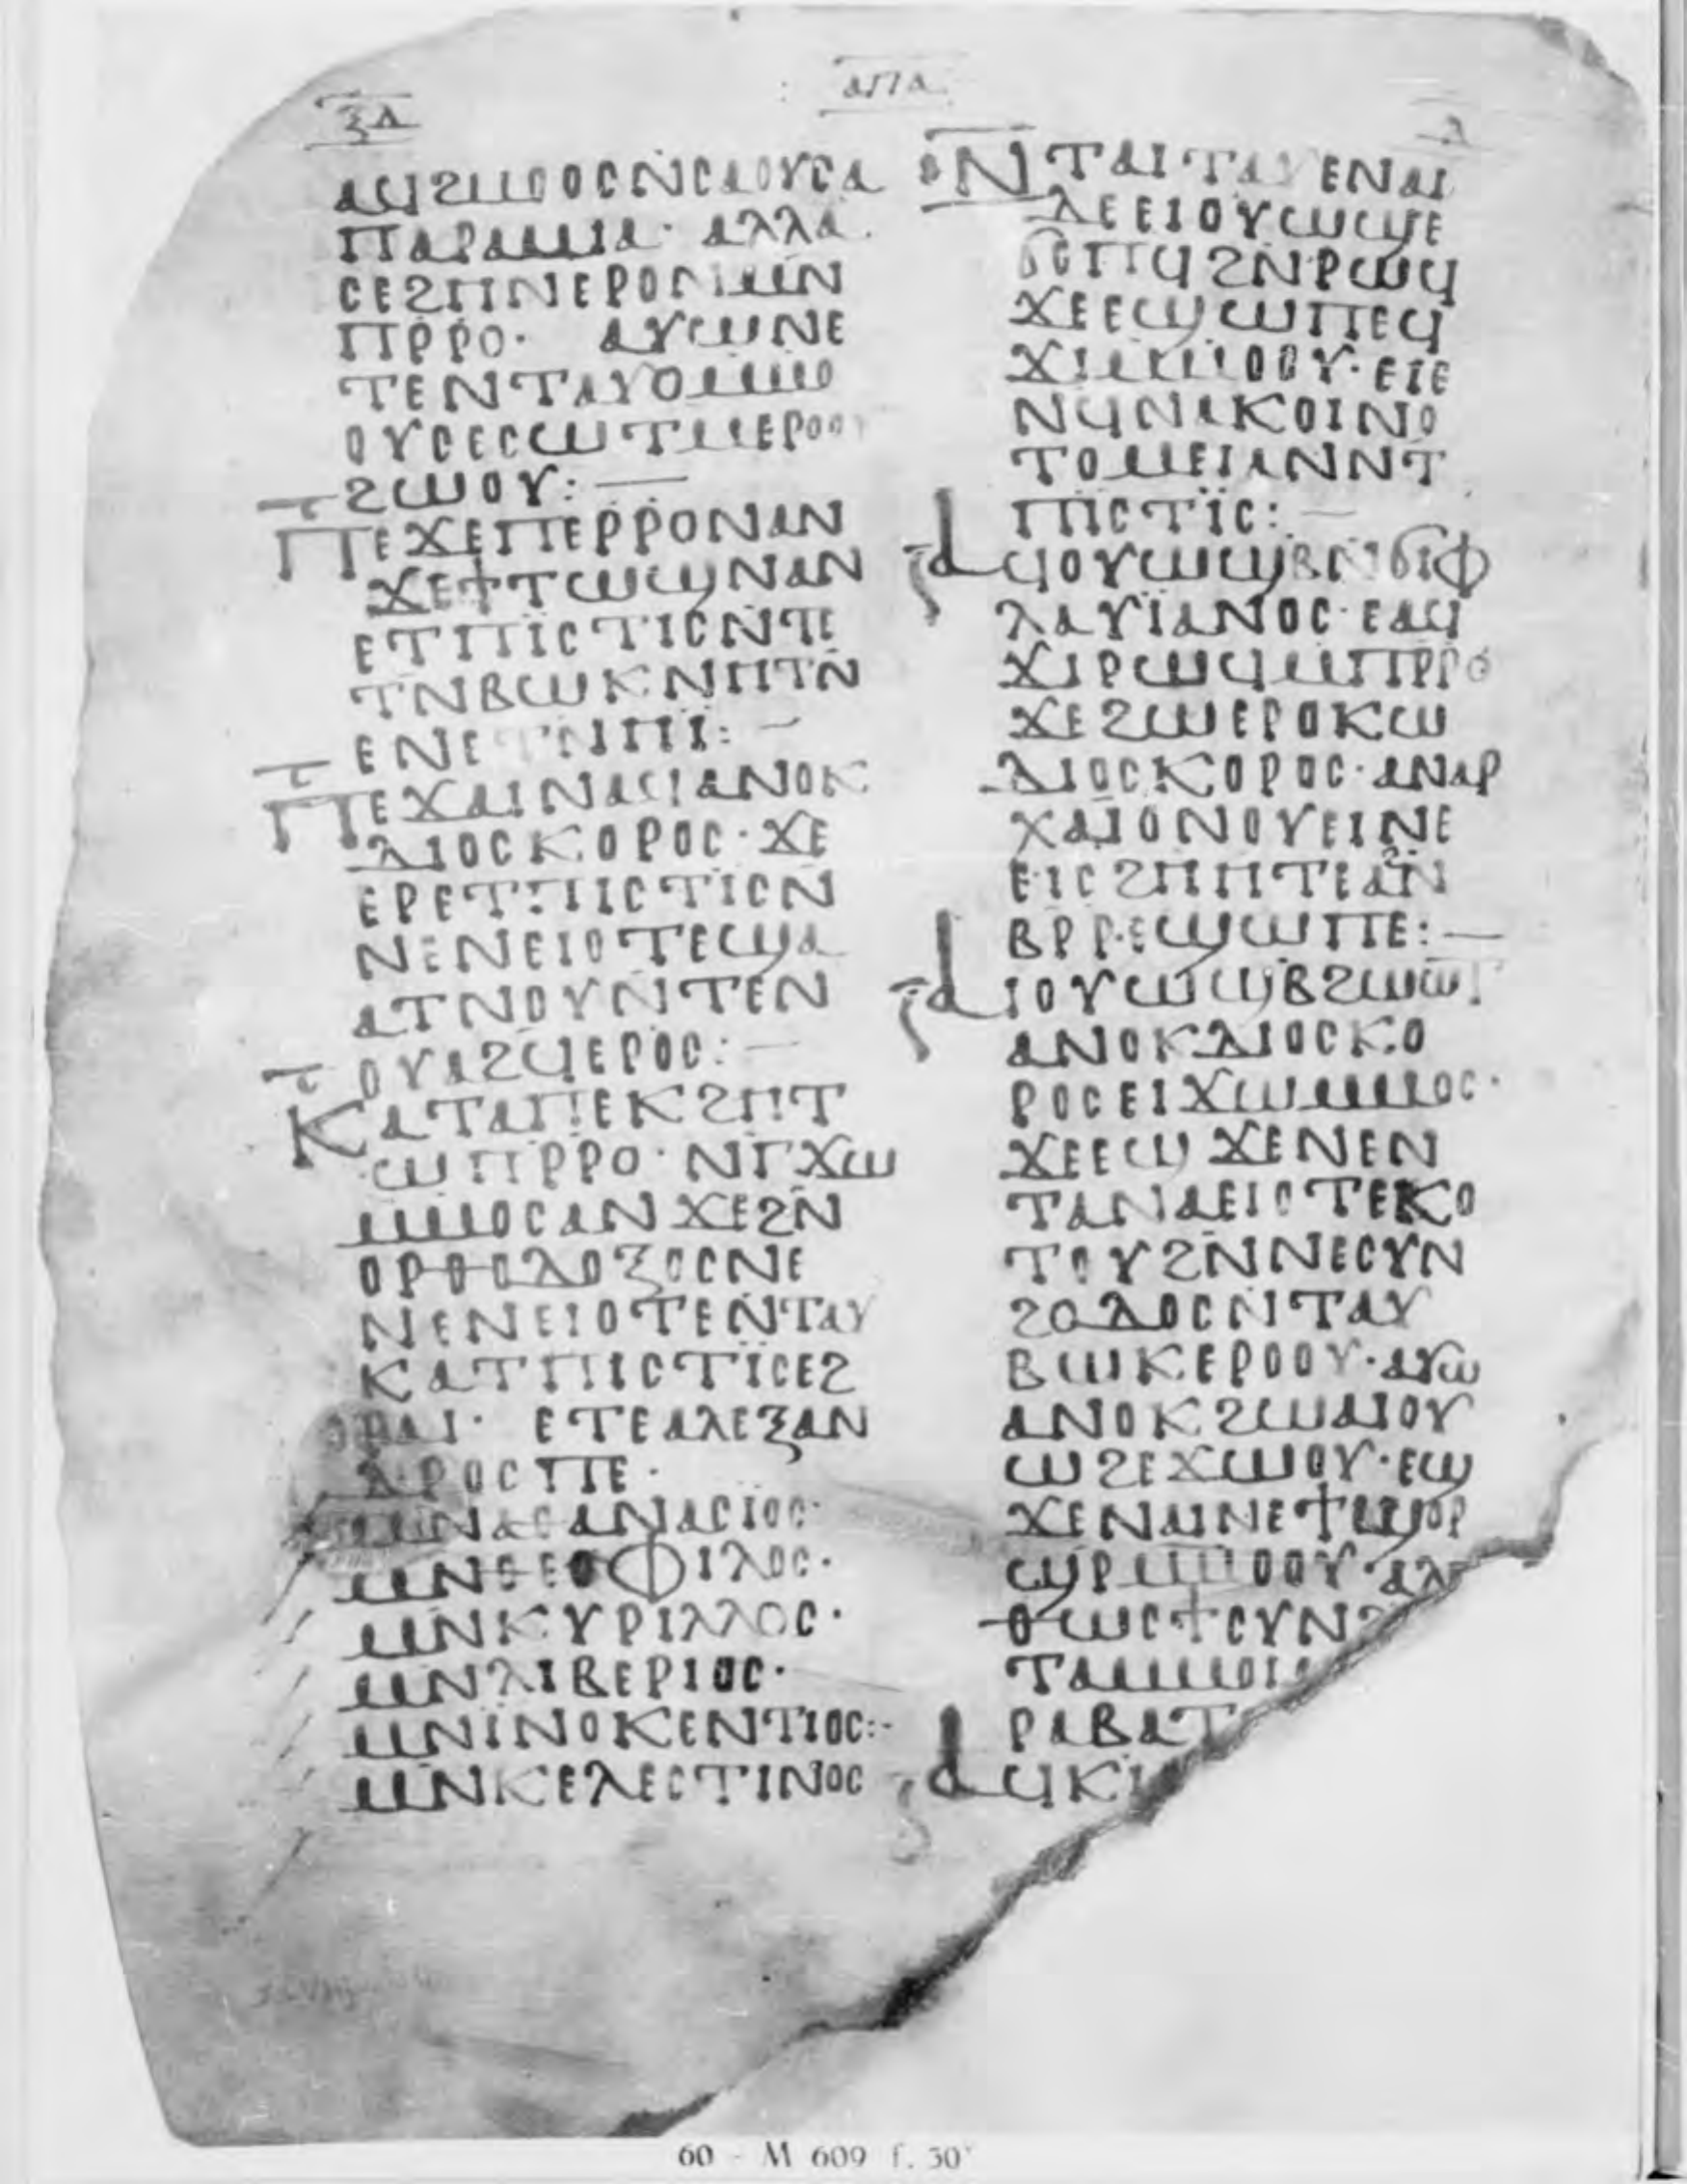 ⲝⲇ
ⲁⲡⲁ
ⲁϥϩⲙⲟⲟⲥⲛ̄ⲥⲁⲟⲩⲥⲁ
ⲡⲁⲣⲁⲙⲙⲁ· ⲁⲗⲗⲁ
ⲥⲉϩⲏⲛⲉⲣⲟⲛⲙⲛ
ⲡⲣⲣⲟ· ⲁⲩⲱⲛⲉ
ⲧⲉⲛⲧⲁⲩⲟⲙⲙⲟ
ⲟⲩⲥⲉⲥⲱⲧⲙⲉⲣⲟⲟⲩ
ϩⲱⲟⲩ:—
ⲡⲉϫⲉⲡⲉⲣⲣⲟⲛⲁⲛ
ϫⲉϯⲧⲱϣⲛⲁⲛ
ⲉⲧⲡⲓ̈ⲥⲧⲓⲥⲛ̄ⲧⲉ
ⲧⲛ̄ⲃⲱⲕⲛ̄ⲏⲧⲛ̄
ⲉⲛⲉⲧⲛ̄ⲏⲓ̈:—
ⲡⲉϫⲁⲓⲛⲁϥⲁⲛⲟⲕ
ⲇⲓⲟⲥⲕⲟⲣⲟⲥ·ϫⲉ
ⲉⲣⲉⲧⲡⲓⲥⲧⲓⲥⲛ̄
ⲛⲉⲛⲉⲓⲟⲧⲉϣⲁ
ⲁⲧⲛⲟⲩⲛ̄ⲧⲉⲛ
ⲟⲩⲁϩϥⲉⲣⲟⲥ:—
ⲕⲁⲧⲁⲡⲉⲕϩⲏⲧ
ⲱⲡⲣⲣⲟ·ⲛⲅϫⲱ
ⲙⲙⲟⲥⲁⲛϫⲉϩⲛ̄
ⲟⲣⲑⲟⲇⲟⲝⲟⲥⲛⲉ
ⲛⲉⲛⲉⲓⲟⲧⲉⲛ̄ⲧⲁⲩ
ⲕⲁⲧⲡⲓⲥⲧⲓ̈ⲥⲉϩ
ⲣⲁⲓ· ⲉⲧⲉⲁⲗⲉⲝⲁⲛ
ⲇⲣⲟⲥⲡⲉ·
ⲙⲛⲁⲑⲁⲛⲁⲥⲓⲟⲥ·
ⲙⲛⲑⲉⲟⲫⲓⲗⲟⲥ·
ⲙⲛⲕⲩⲣⲓⲗⲗⲟⲥ·
ⲙⲛⲗⲓⲃⲉⲣⲓⲟⲥ·
ⲙⲛⲓⲛⲟⲕⲉⲛⲧⲓⲟⲥ:-
ⲙⲛⲕⲉⲗⲉⲥⲧⲓⲛⲟⲥ
ⲛ̄ⲧⲁⲓⲧⲁⲩⲉⲛⲁⲓ
ⲇⲉⲉⲓⲟⲩⲱϣⲉ
ϭⲟⲡϥϩⲛ̄ⲣⲱϥ
ϫⲉⲉϣⲱⲡⲉϥ
ϫⲓⲙⲙⲟⲟⲩ·ⲉⲓⲉ
ⲛϥⲛⲁⲕⲟⲓⲛⲟ
ⲧⲟⲙⲉⲓⲁⲛⲛⲧ
ⲡⲓⲥⲧⲓ̈ⲥ:—
ⲁϥⲟⲩⲱϣⲃⲛ̄ϭⲓⲫ
ⲗⲁⲩⲓ̈ⲁⲛⲟⲥ·ⲉⲁϥ
ϫⲓⲣⲱϥⲙⲡⲣⲣⲟ
ϫⲉϩⲱⲉⲣⲟⲕⲱ
ⲇⲓⲟⲥⲕⲟⲣⲟⲥ·ⲁⲛⲁⲣ
ⲭⲁⲓⲟⲛⲟⲩⲉⲓⲛⲉ
ⲉⲓⲥϩⲏⲏⲧⲉⲁϩⲛ̄
ⲃⲣⲣⲉϣⲱⲡⲉ:—
ⲁⲓⲟⲩⲱϣⲃϩⲱⲱⲧ
ⲁⲛⲟⲕⲇⲓⲟⲥⲕⲟ
ⲣⲟⲥⲉⲓϫⲱⲙⲙⲟⲥ·
ϫⲉⲉϣϫⲉⲛⲉⲛ
ⲧⲁⲛⲁⲉⲓⲟⲧⲉⲕⲟ
ⲧⲟⲩϩⲛ̄ⲛⲉⲥⲩⲛ
ϩⲟⲇⲟⲥⲛ̄ⲧⲁⲩ
ⲃⲱⲕⲉⲣⲟⲟⲩ·ⲁⲩⲱ
ⲁⲛⲟⲕϩⲱⲁⲓⲟⲩ
ⲱϩⲉϫⲱⲟⲩ·ⲉϣ
ϫⲉⲛⲁⲓⲛⲉϯϣⲟⲣ
ϣⲣⲙⲙⲟⲟⲩ·ⲁⲗ
ⲑⲱⲥϯⲥⲩⲛϩ
ⲧⲁⲙⲙⲟⲓ
ⲣⲁⲃⲁⲧ
ⲁϥⲕ
60 - M 609 f. 30ʳ